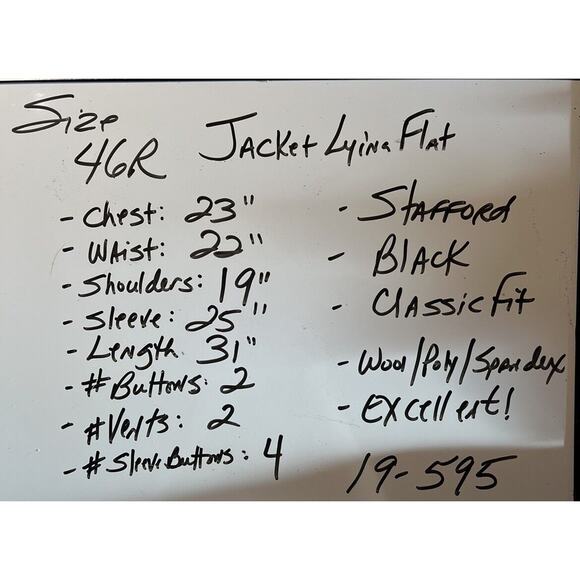 Size
46R Jacket Lying Flat
- Chest: 23"
- Waist: 22"
- Shoulders: 19"
- Sleeve: 25"
- Length: 31"
- # Buttons: 2
- # Vents: 2
- # Sleeve Buttons: 4
- Stafford
- Black
- Classic Fit
- Wool/Poly/Spandex
- Excellent!
19-595